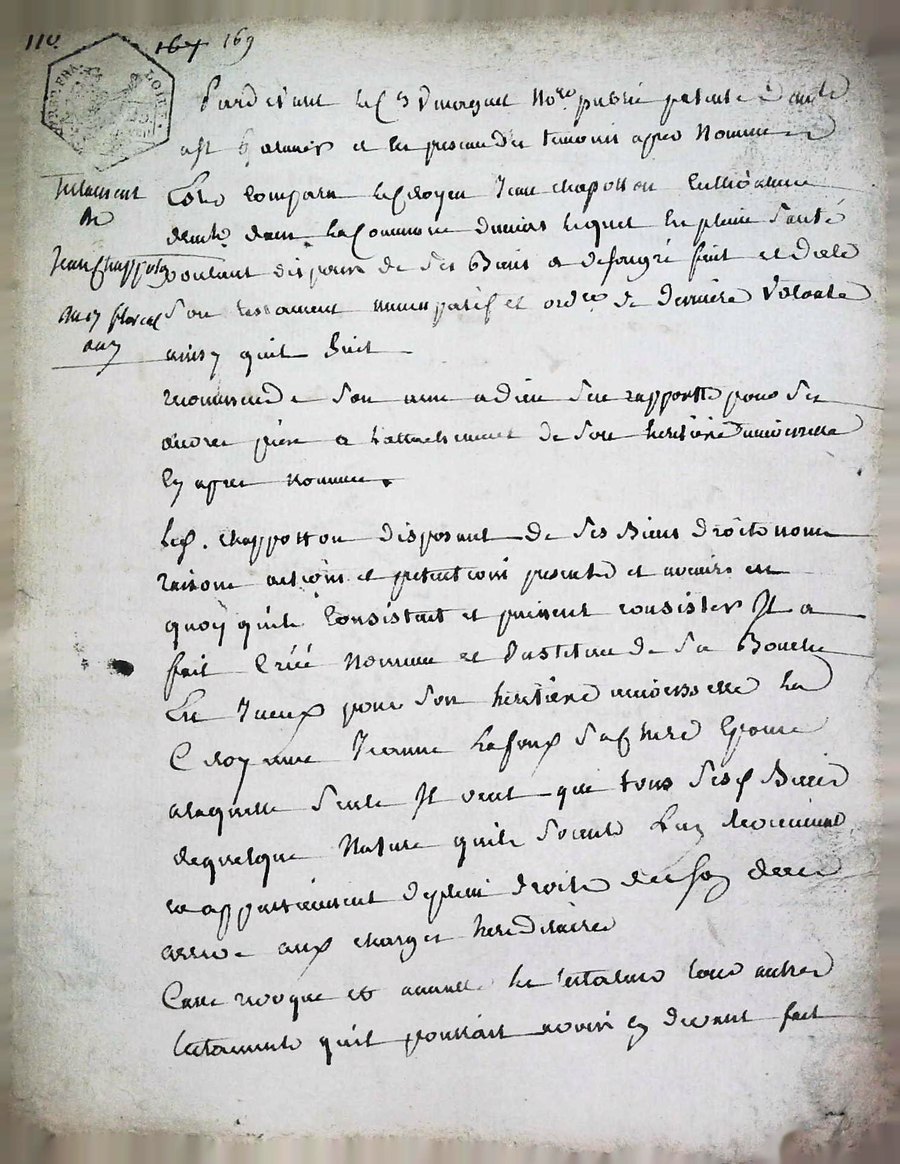 110 167 169
REP. FRA. LOIRE
Pardevant le C. Nore. public patenté
et les presence des temoins apres Nommes
Testament
de
Jean Chappoton
du 7 floreal
an 7
Est comparu le Citoyen Jean chapotton Cultivateur
demt. dans la Commune lequel En pleine Santé
voulant disposer de Ses Biens a de son gré fait et dicté
Son testament nuncupatif et ordre. de derniere Volonté
ainsy quil Suit
recommende Son ame a dieu Sen rapporte pour Ses
œuvres pies a l'attachement de Son heritiere universelle
Cy apres Nommée.
Le C. chappotton disposant de Ses Biens droits noms
raisons actions et pretentions presents et avenirs en
quoy quils Consistent et puissent consister Il a
fait Créé Nommé et Institue de Sa Bouche
pour Son heritiere universelle La
Citoyenne Jeanne Sa chere Epouse
a laquelle Seule Il veut que tous Sesd. Biens
de quelque Nature quils Soient
appartiennent de plein droits
aux charges hereditaires
Casse revoque et annulle Le testateur tous autres
testaments quil pourrait avoir Cy devant fait